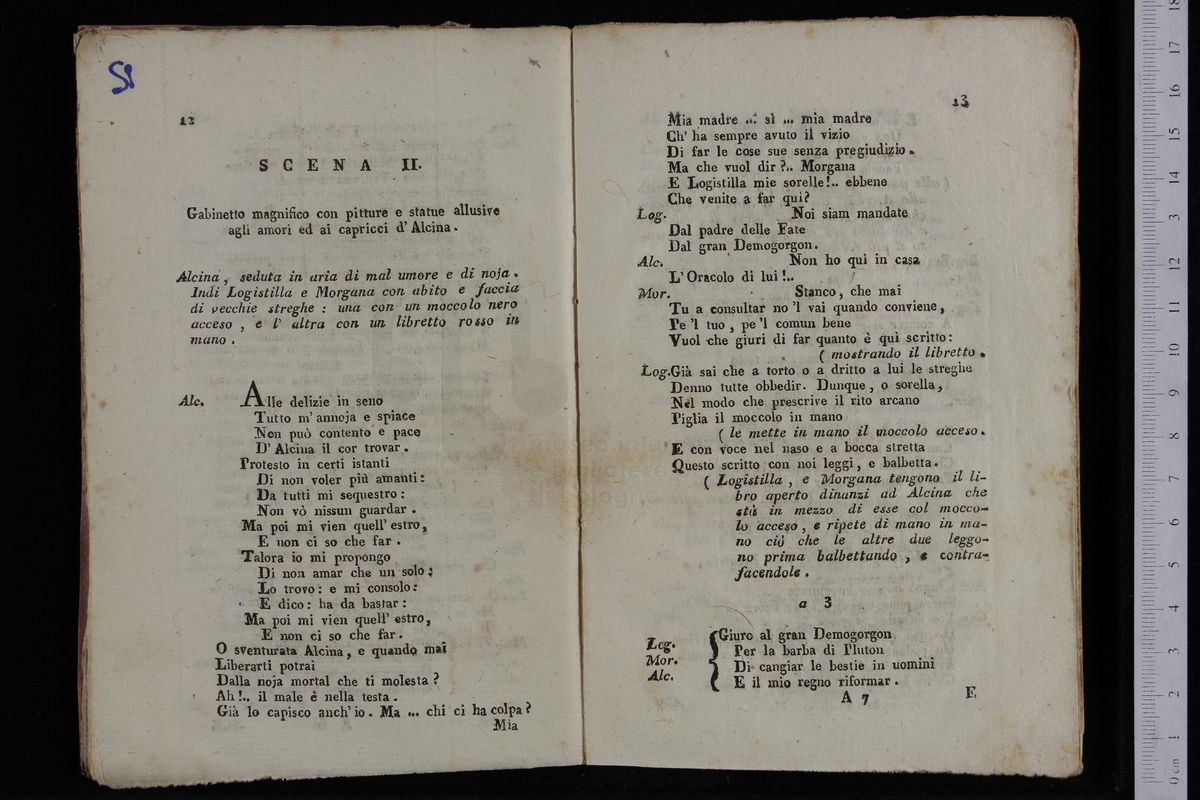 Si
12
SCENA II.
Gabinetto magnifico con pitture e statue allusive
agli amori ed ai capricci d' Alcina.
Alcina, seduta in aria di mal umore e di noja.
Indi Logistilla e Morgana con abito e faccia
di vecchie streghe: una con un moccolo nero
acceso, e l' altra con un libretto rosso in
mano.
Alc. Alle delizie in seno
Tutto m' annoja e spiace
Non può contento e pace
D' Alcina il cor trovar.
Protesto in certi istanti
Di non voler più amanti:
Da tutti mi sequestro:
Non vò nissun guardar.
Ma poi mi vien quell' estro,
E non ci so che far.
Talora io mi propongo
Di non amar che un solo;
Lo trovo: e mi consolo:
E dico: ha da bastar:
Ma poi mi vien quell' estro,
E non ci so che far.
O sventurata Alcina, e quando mai
Liberarti potrai
Dalla noja mortal che ti molesta?
Ah!.. il male è nella testa.
Già lo capisco anch' io. Ma ... chi ci ha colpa?
Mia
13
Mia madre ... sì ... mia madre
Ch' ha sempre avuto il vizio
Di far le cose sue senza pregiudizio.
Ma che vuol dir?.. Morgana
E Logistilla mie sorelle!.. ebbene
Che venite a far qui?
Log. Noi siam mandate
Dal padre delle Fate
Dal gran Demogorgon.
Alc. Non ho quì in casa
L' Oracolo di lui!..
Mor. Stanco, che mai
Tu a consultar no 'l vai quando conviene,
Pe 'l tuo, pe 'l comun bene
Vuol che giuri di far quanto è quì scritto:
( mostrando il libretto.
Log. Già sai che a torto o a dritto a lui le streghe
Denno tutte obbedir. Dunque, o sorella,
Nel modo che prescrive il rito arcano
Piglia il moccolo in mano
( le mette in mano il moccolo acceso.
E con voce nel naso e a bocca stretta
Questo scritto con noi leggi, e balbetta.
( Logistilla, e Morgana tengono il li-
bro aperto dinanzi ad Alcina che
stà in mezzo di esse col mocco-
lo acceso, e ripete di mano in ma-
no ciò che le altre due leggo-
no prima balbettando, e contra-
facendole.
a 3
Log. Giuro al gran Demogorgon
Mor. Per la barba di Pluton
Di cangiar le bestie in uomini
Alc. E il mio regno riformar.
A 7 E